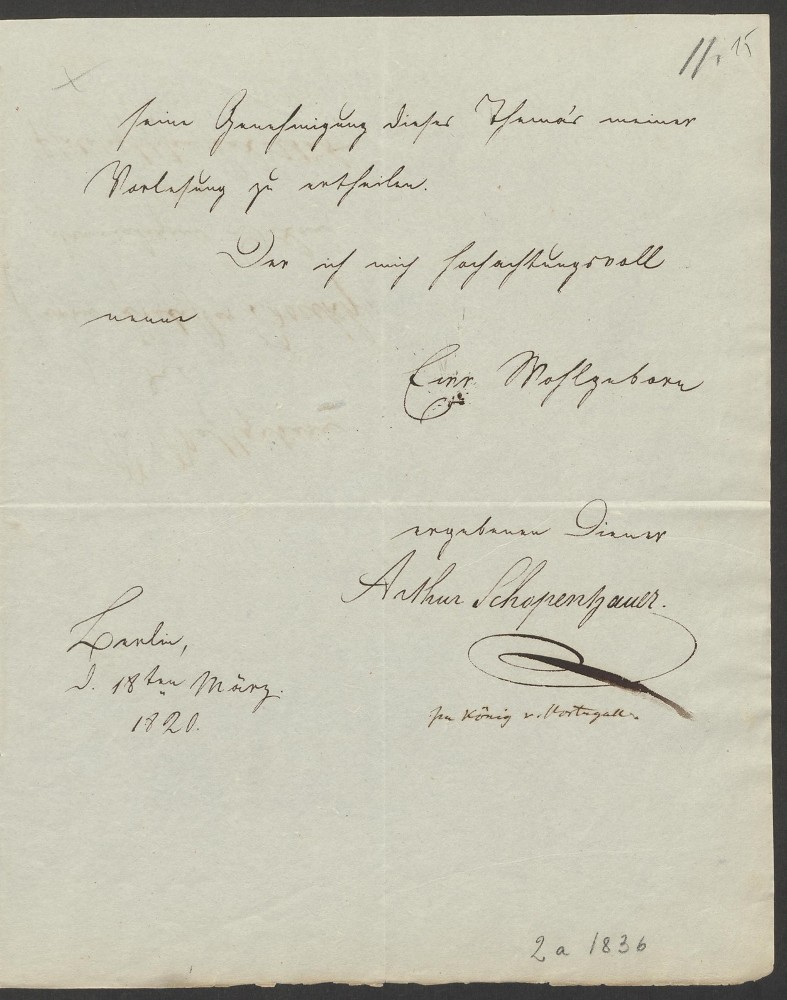 11. 15
seine Genehmigung dieses Thema's meiner
Vorlesung zu ertheilen.
Der ich mich hochachtungsvoll
nenne
Ewr Wohlgeborn
ergebenen Diener
Arthur Schopenhauer.
Berlin,
d. 18ten März.
1820.
im König v. Portugall.
2 a 1836